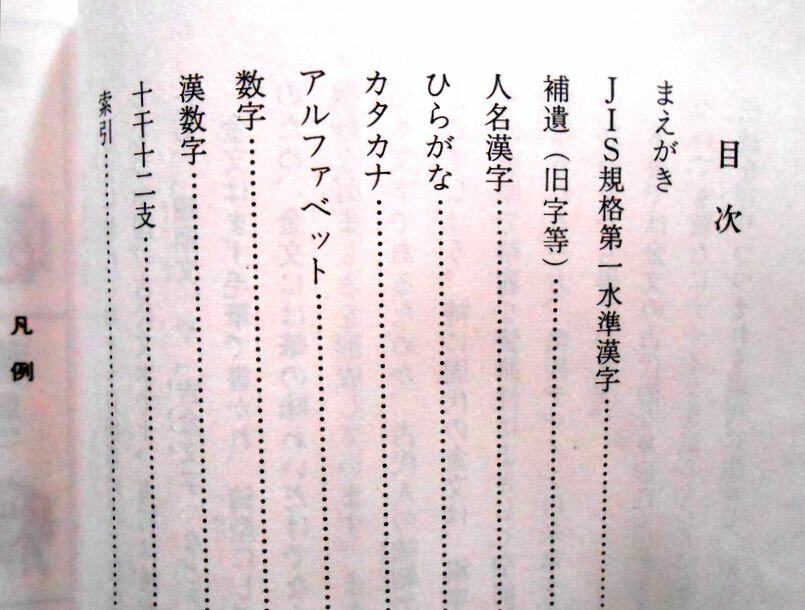 目次
まえがき
JIS規格第一水準漢字
補遺（旧字等）
人名漢字
ひらがな
カタカナ
アルファベット
数字
漢数字
十干十二支
索引
凡例